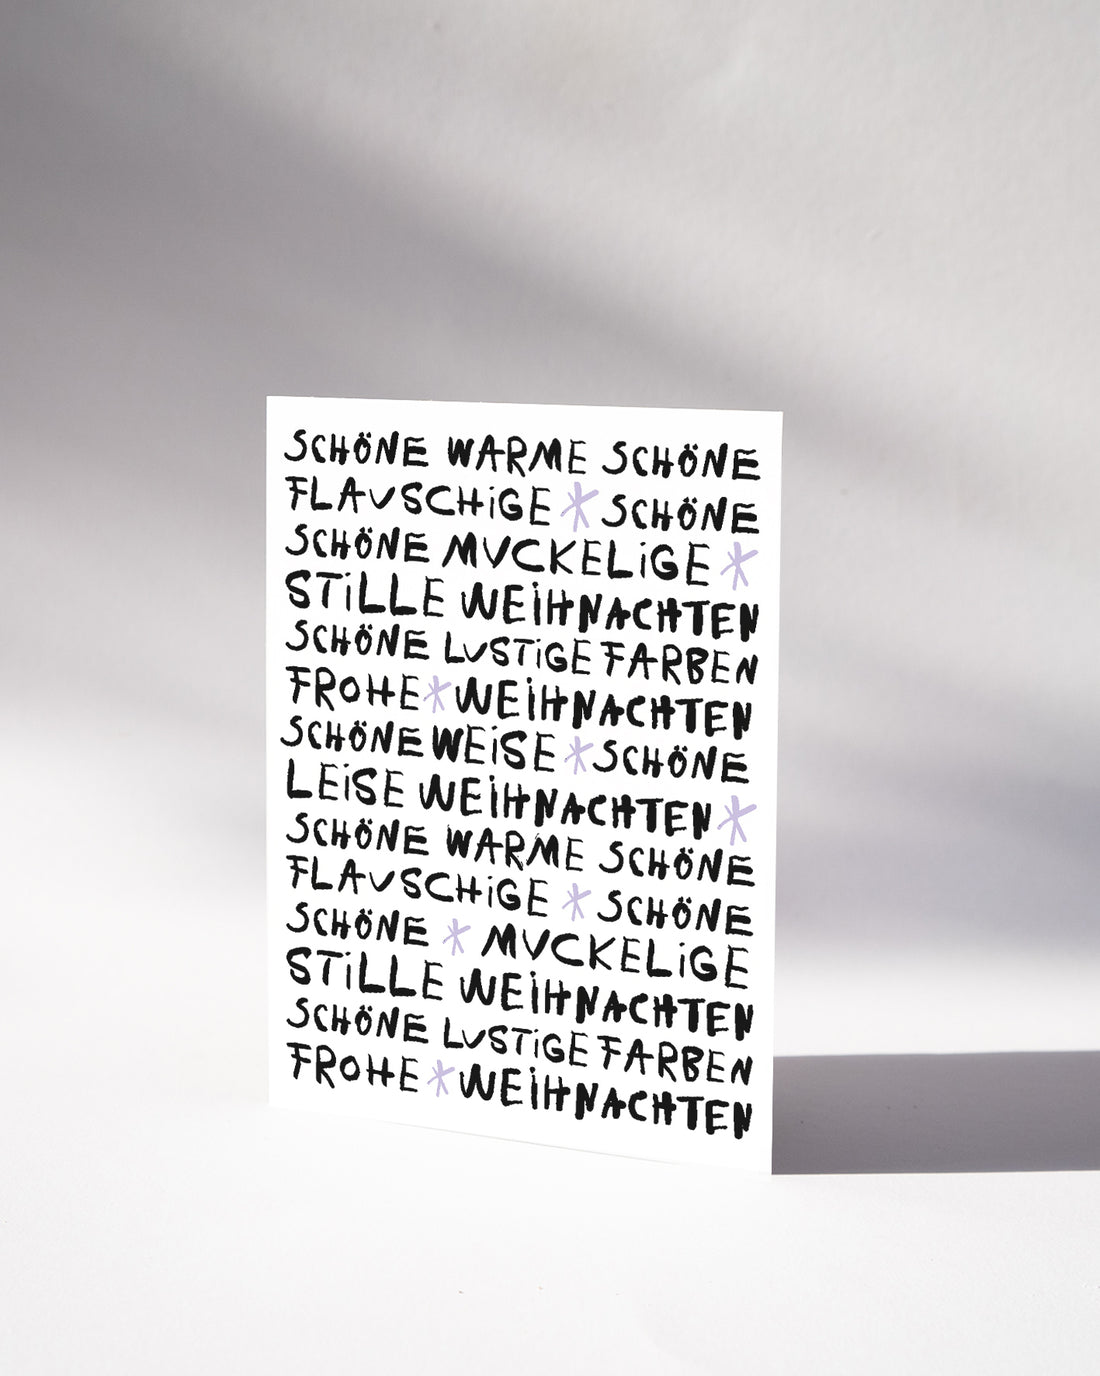 SCHÖNE WARME SCHÖNE
FLAUSCHiGE * SCHÖNE
SCHÖNE MUCKELiGE *
STiLLE WEiHNACHTEN
SCHÖNE LUSTiGE FARBEN
FROHE * WEiHNACHTEN
SCHÖNE WEiSE * SCHÖNE
LEiSE WEiHNACHTEN *
SCHÖNE WARME SCHÖNE
FLAUSCHiGE * SCHÖNE
SCHÖNE * MUCKELiGE
STiLLE WEiHNACHTEN
SCHÖNE LUSTiGE FARBEN
FROHE * WEiHNACHTEN